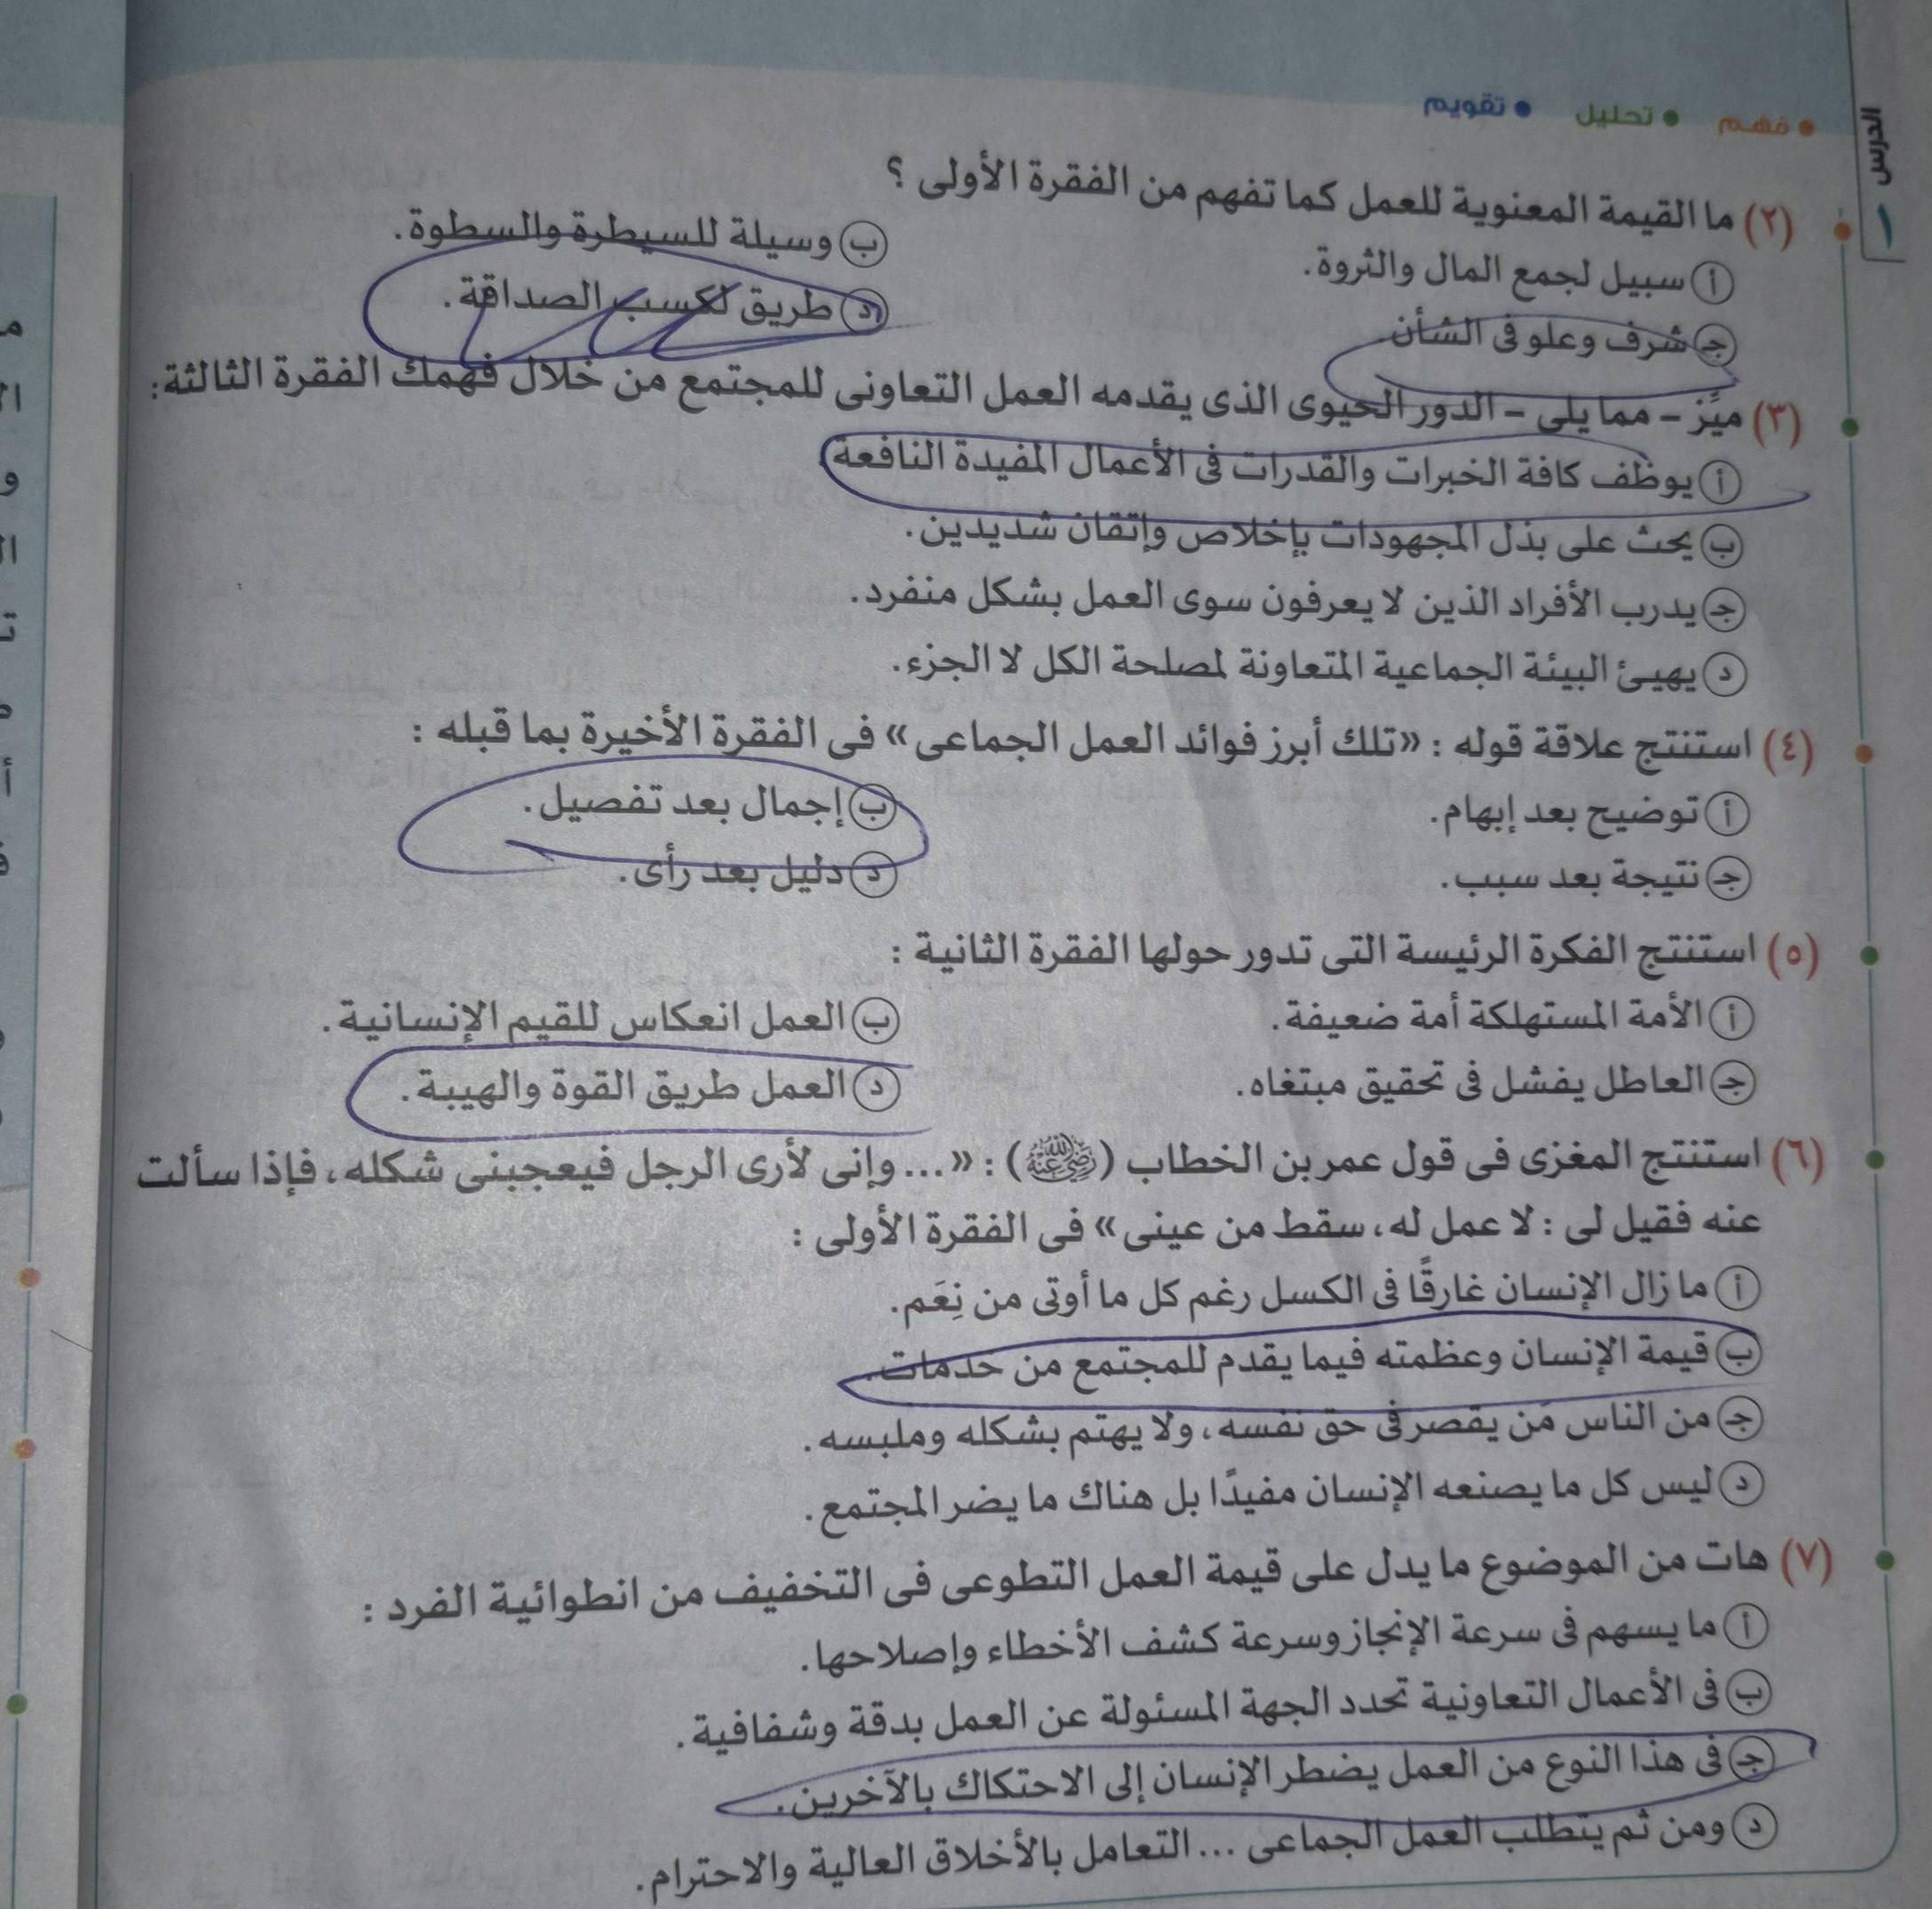 الدرس
١
• فهم • تحليل • تقويم
(٢) ما القيمة المعنوية للعمل كما تفهم من الفقرة الأولى ؟
أ سبيل لجمع المال والثروة. ب وسيلة للسيطرة والسطوة.
ج شرف وعلو فى الشأن. د طريق لكسب الصداقة.
(٣) ميِّز - مما يلى - الدور الحيوى الذى يقدمه العمل التعاونى للمجتمع من خلال فهمك الفقرة الثالثة:
أ يوظف كافة الخبرات والقدرات فى الأعمال المفيدة النافعة
ب يحث على بذل المجهودات بإخلاص وإتقان شديدين.
ج يدرب الأفراد الذين لا يعرفون سوى العمل بشكل منفرد.
د يهيئ البيئة الجماعية المتعاونة لمصلحة الكل لا الجزء.
(٤) استنتج علاقة قوله : «تلك أبرز فوائد العمل الجماعى» فى الفقرة الأخيرة بما قبله :
أ توضيح بعد إبهام. ب إجمال بعد تفصيل.
ج نتيجة بعد سبب. د دليل بعد رأى.
(٥) استنتج الفكرة الرئيسة التى تدور حولها الفقرة الثانية :
أ الأمة المستهلكة أمة ضعيفة. ب العمل انعكاس للقيم الإنسانية.
ج العاطل يفشل فى تحقيق مبتغاه. د العمل طريق القوة والهيبة.
(٦) استنتج المغزى فى قول عمر بن الخطاب (رضي الله عنه) : «... وإنى لأرى الرجل فيعجبنى شكله، فإذا سألت
عنه فقيل لى : لا عمل له، سقط من عينى» فى الفقرة الأولى :
أ ما زال الإنسان غارقًا فى الكسل رغم كل ما أوتى من نِعَم.
ب قيمة الإنسان وعظمته فيما يقدم للمجتمع من خدمات.
ج من الناس مَن يقصر فى حق نفسه، ولا يهتم بشكله وملبسه.
د ليس كل ما يصنعه الإنسان مفيدًا بل هناك ما يضر المجتمع.
(٧) هات من الموضوع ما يدل على قيمة العمل التطوعى فى التخفيف من انطوائية الفرد :
أ ما يسهم فى سرعة الإنجاز وسرعة كشف الأخطاء وإصلاحها.
ب فى الأعمال التعاونية تحدد الجهة المسئولة عن العمل بدقة وشفافية.
ج فى هذا النوع من العمل يضطر الإنسان إلى الاحتكاك بالآخرين.
د ومن ثم يتطلب العمل الجماعى ... التعامل بالأخلاق العالية والاحترام.